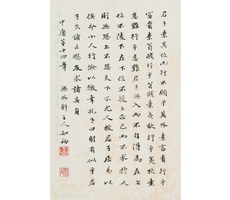 君子素其位而行不願乎其外素富貴行乎
富貴素貧賤行乎貧賤素夷狄行乎夷狄素
患難行乎患難君子無入而不自得焉在上
位不陵下在下位不援上正己而不求於人
則無怨上不怨天下不尤人故君子居易以
俟命小人行險以徼幸子曰射有似乎君
子失諸正鵠反求諸其身
中庸第十四章